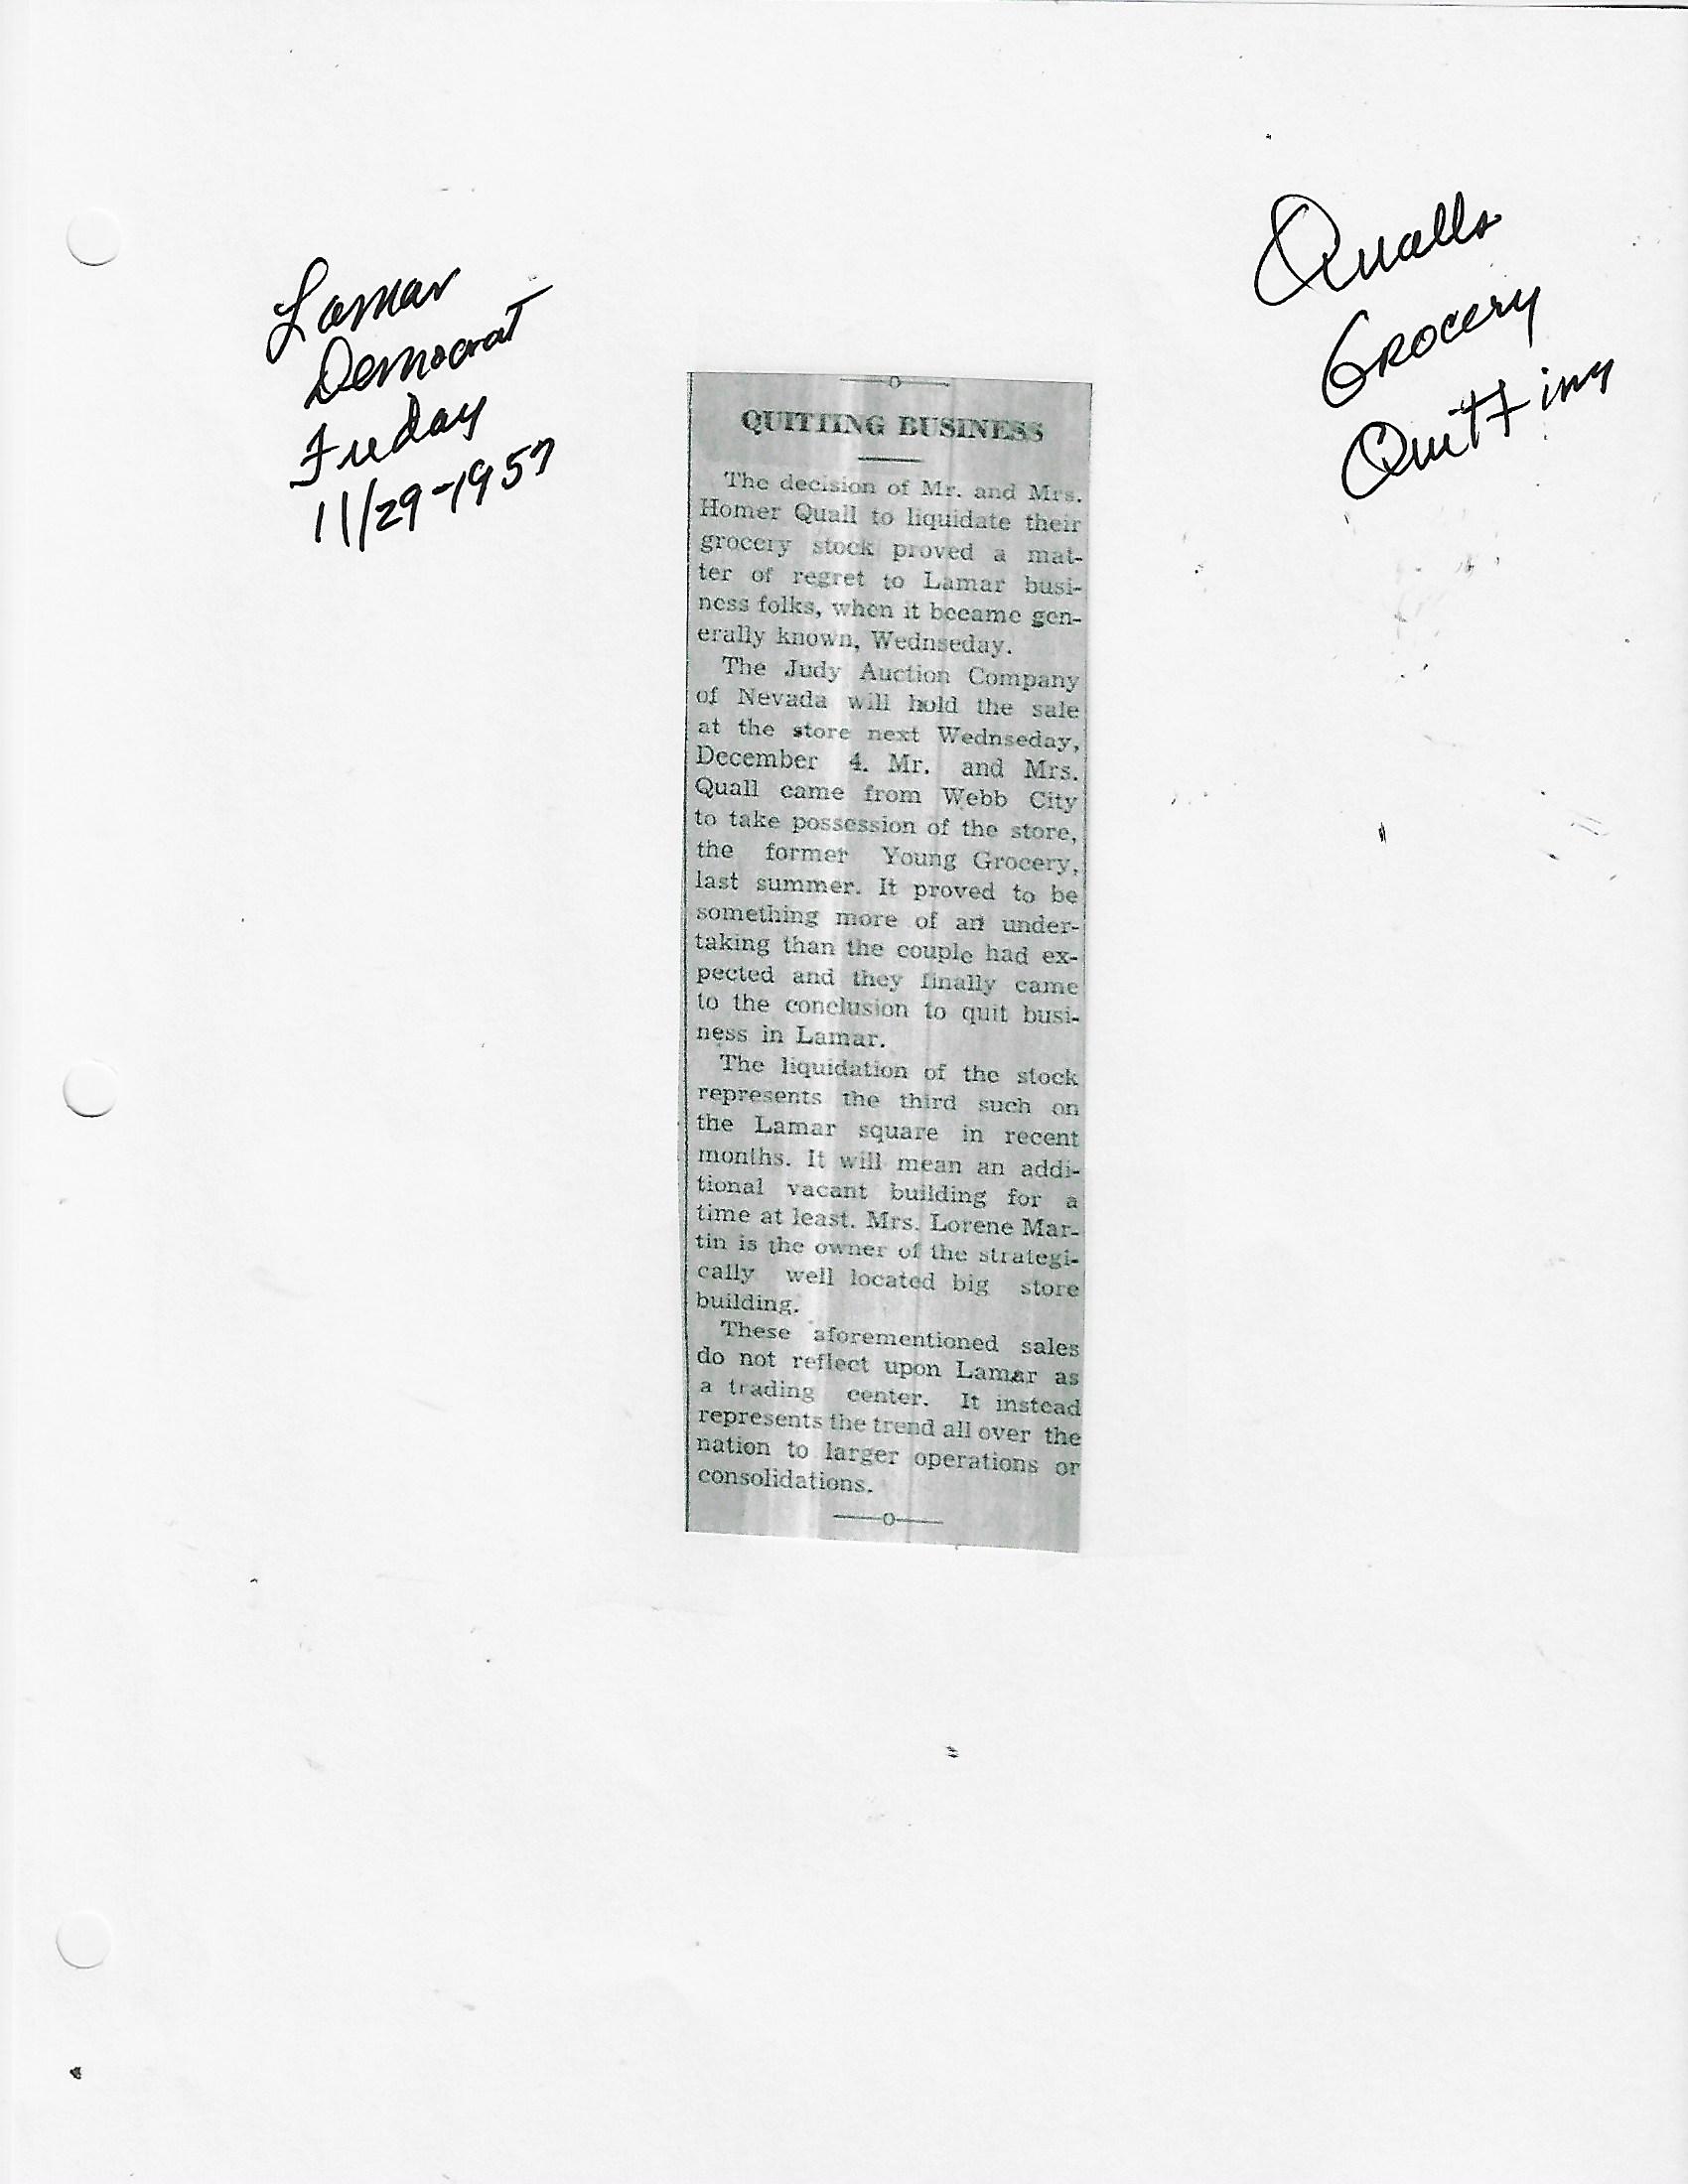 Lamar
Democrat
Friday
11/29-1957
Qualls
Grocery
Quitting
QUITTING BUSINESS
The decision of Mr. and Mrs.
Homer Quall to liquidate their
grocery stock proved a mat-
ter of regret to Lamar busi-
ness folks, when it became gen-
erally known, Wednseday.
The Judy Auction Company
of Nevada will hold the sale
at the store next Wednseday,
December 4. Mr. and Mrs.
Quall came from Webb City
to take possession of the store,
the former Young Grocery,
last summer. It proved to be
something more of an under-
taking than the couple had ex-
pected and they finally came
to the conclusion to quit busi-
ness in Lamar.
The liquidation of the stock
represents the third such on
the Lamar square in recent
months. It will mean an addi-
tional vacant building for a
time at least. Mrs. Lorene Mar-
tin is the owner of the strategi-
cally well located big store
building.
These aforementioned sales
do not reflect upon Lamar as
a trading center. It instead
represents the trend all over the
nation to larger operations or
consolidations.